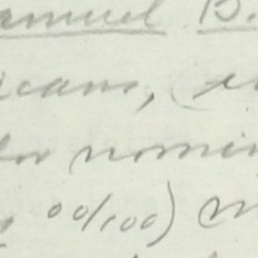 amuel B.
icans, (
or nomin
00/100)